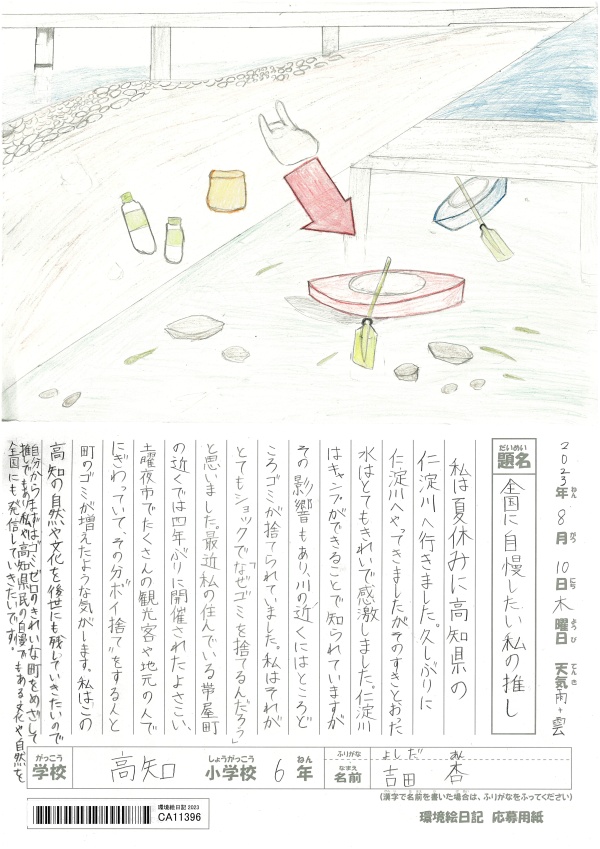 2023年ねん 8月がつ 10日にち 木曜日ようび 天気てんき 雨+雲
題名だいめい 全国に自慢したい私の推し
私は夏休みに高知県の
仁淀川へ行きました。久しぶりに
仁淀川へやってきましたがそのすきとおった
水はとてもきれいで感激しました。仁淀川
はキャンプができることで知られていますが
その影響もあり、川の近くにはところど
ころゴミが捨てられていました。私はそれが
とてもショックで「なぜゴミを捨てるんだろう」
と思いました。最近私の住んでいる帯屋町
の近くでは四年ぶりに開催されたよさこい、
土曜夜市でたくさんの観光客や地元の人で
にぎわっていて、その分"ポイ捨て"をする人と
町のゴミが増えたような気がします。私はこの
高知の自然や文化を後世にも残していきたいので
自分からまずはゴミゼロのきれいな町をめざして
推しでもあり私や高知県民の自慢でもある文化や自然を
全国にも発信していきたいです。
学校がっこう 高知 小学校しょうがっこう 6年ねん
ふりがな よしだ あん
名前なまえ 吉田 杏
(漢字で名前を書いた場合は、ふりがなをふってください)
環境絵日記 2023
CA11396
環境絵日記 応募用紙